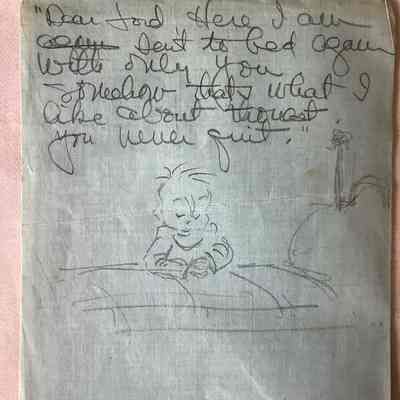 "Dear Lord Here I am
sent to bed again
with only you
- Somehow thats what I
like about
you never quit."